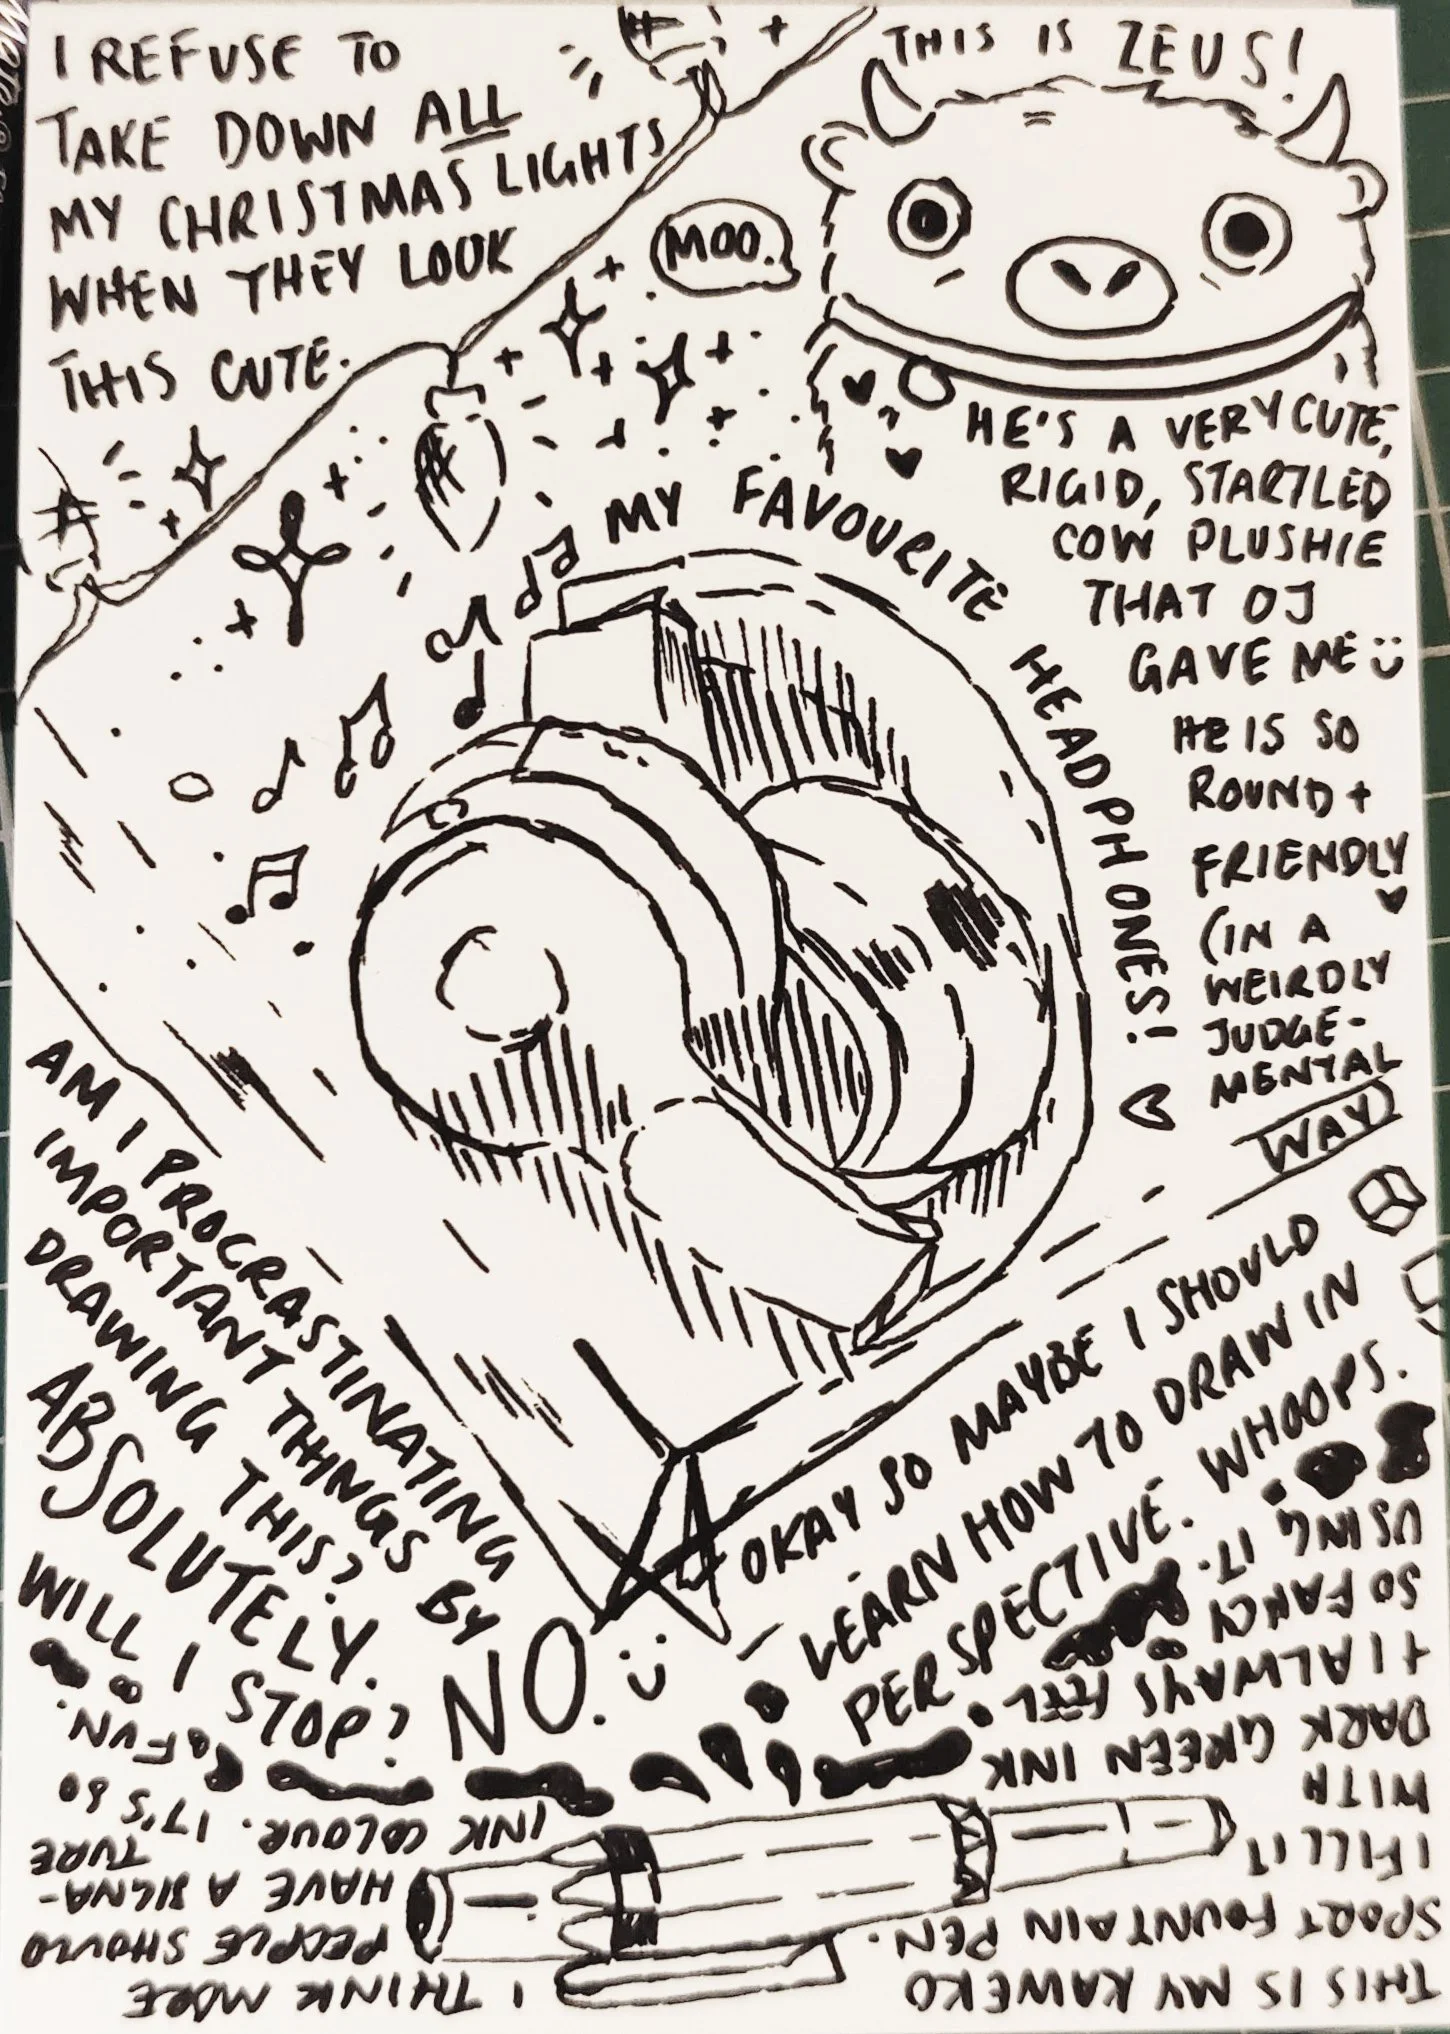 I REFUSE TO
TAKE DOWN ALL
MY CHRISTMAS LIGHTS
WHEN THEY LOOK
THIS CUTE.
THIS IS ZEUS!
MOO.
HE'S A VERY CUTE,
RIGID, STARTLED
COW PLUSHIE
THAT OJ
GAVE ME
HE IS SO
ROUND +
FRIENDLY
(IN A
WEIRDLY
JUDGE-
MENTAL
WAY)
MY FAVOURITE HEADPHONES!
OKAY SO MAYBE I SHOULD
LEARN HOW TO DRAW IN
PERSPECTIVE. WHOOPS.
AM I PROCRASTINATING
IMPORTANT THINGS BY
DRAWING THIS?
ABSOLUTELY.
WILL I STOP?
NO.
THIS IS MY KAWEKO
SPORT FOUNTAIN PEN.
I FILL IT
WITH
DARK GREEN INK
+ I ALWAYS FEEL
SO FANCY
USING IT.
I THINK MORE
PEOPLE SHOULD
HAVE A SIGNA-
TURE
INK COLOUR. IT'S SO
FUN.